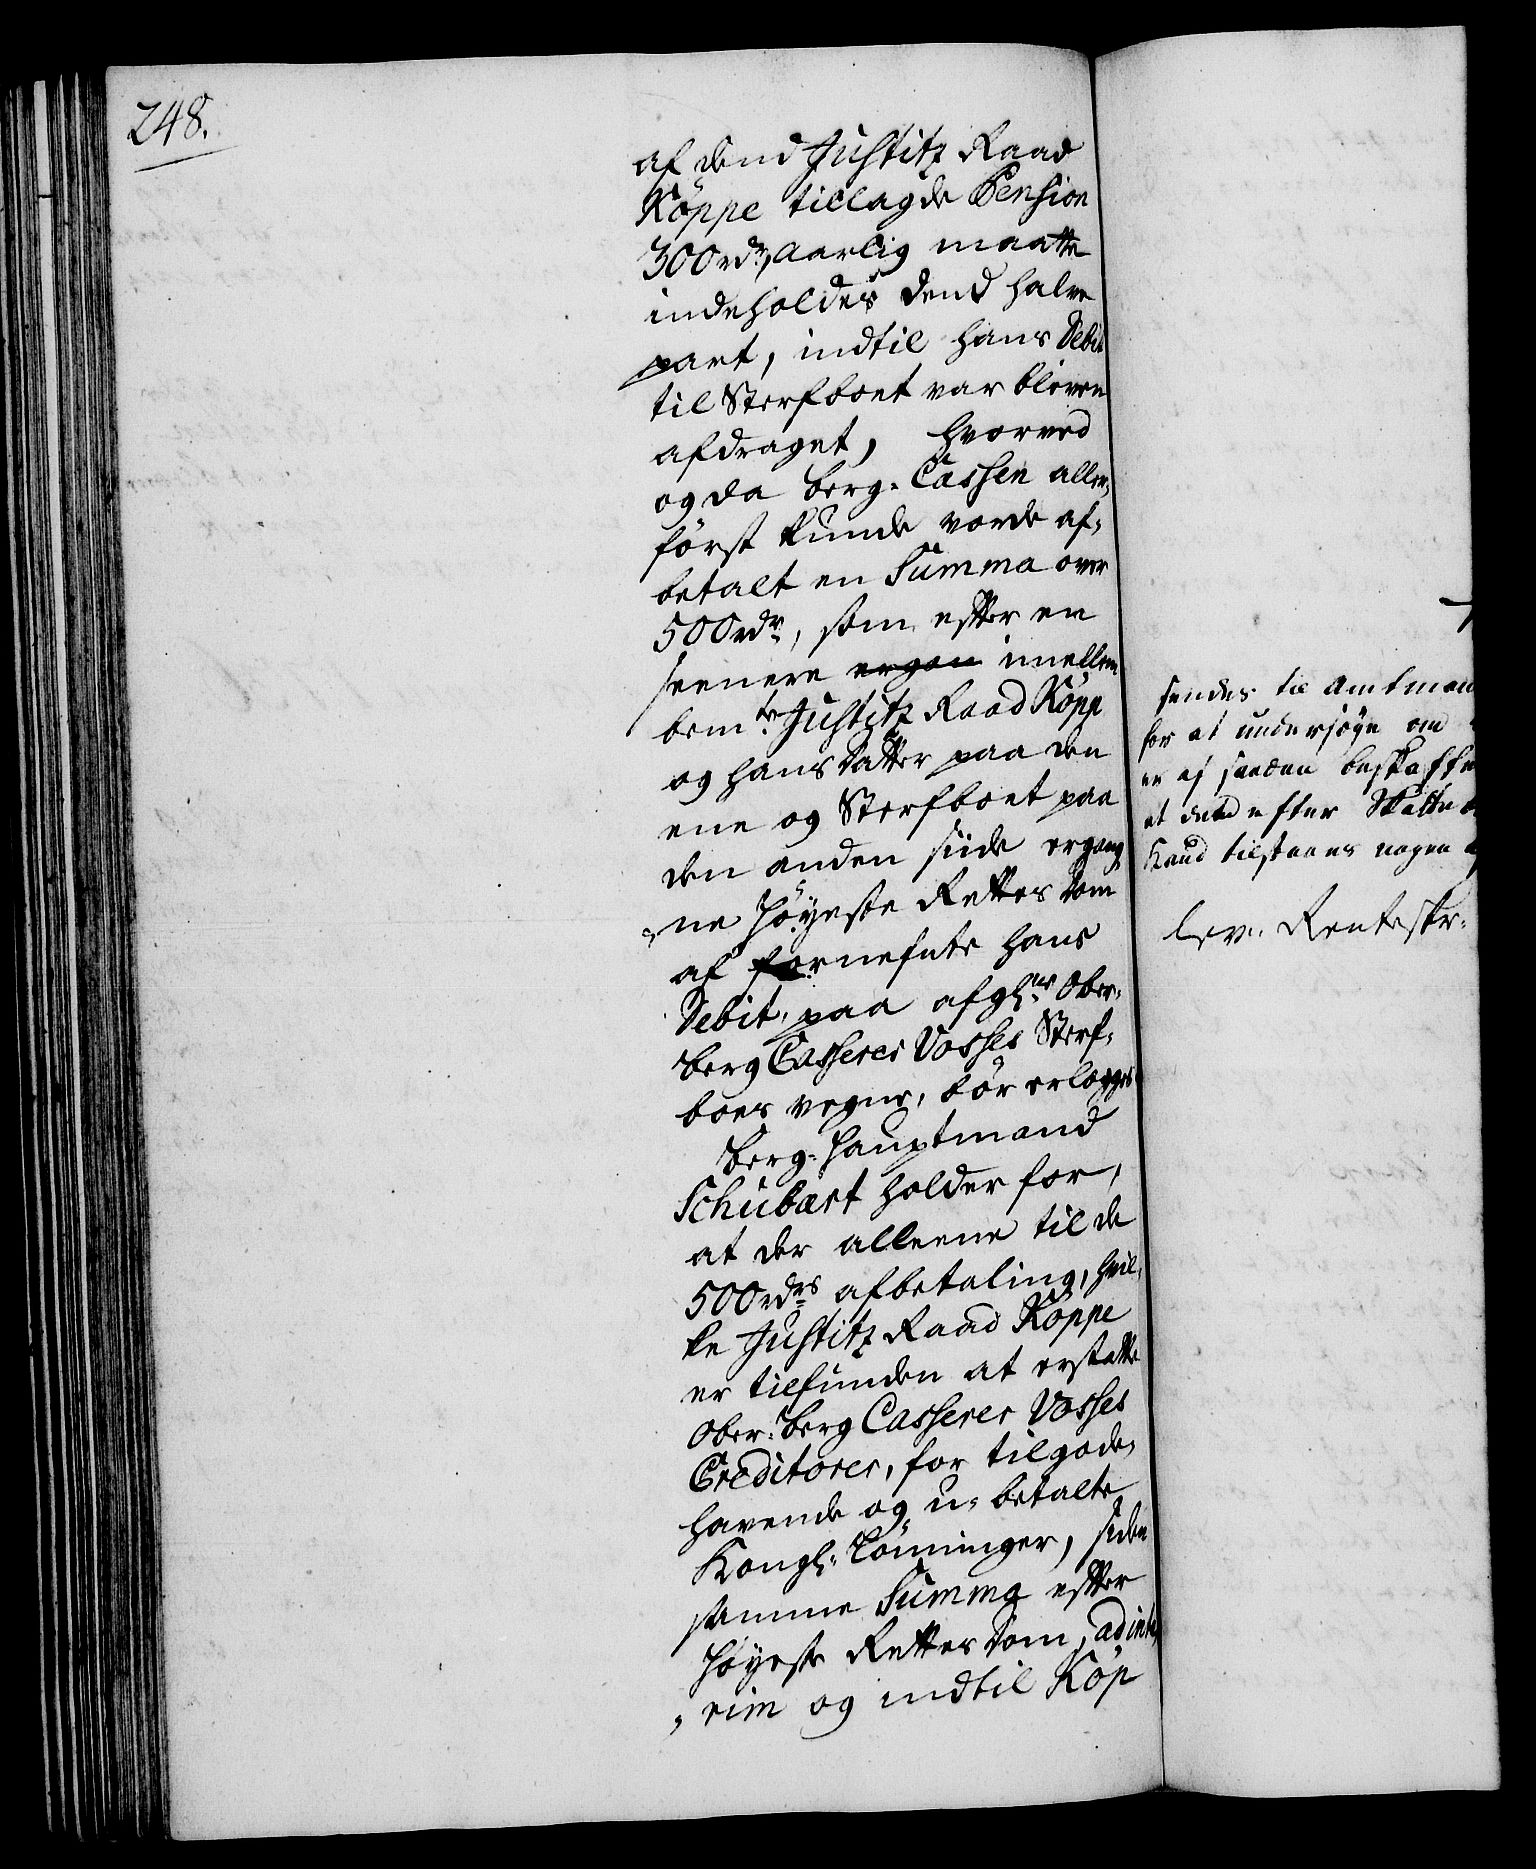 248.
af dend Justitz Raad
Köppe tillagde Pension
300 rdr, aarlig maatte
indeholdes dend halve
part, indtil hans Debit
til Sterfboet var bleven
afdraget, hvorved
og da Berg-Cassen aller-
först kunde vorde af-
betalt en Summa over
500 rdr, som efter en
seenere ergan imellem
bemte Justitz Raad Köppe
og hans Datter paa den
eene og Sterfboet paa
den anden siide ergang-
ne Höyeste Rettes Dom
af fornefnte hans
Debit, paa afghne Ober-
berg Casserer Vosses Sterf-
boes vegne, bör erlegges
Berg-Hauptmand
Schubart holder for,
at der alleene til de
500 rdrs afbetaling, hvil-
ke Justitz Raad Köppe
er tilfunden at erstatte
Ober-Berg Casserer Vosses
Creditorer, for tilgode-
havende og u-betalte
Kongl: Lönninger, siden
samme Summa efter
Höyeste Rettes Dom, ad inte-
rim og indtil Köp
sendes til Amtmand
for at undersöge om
er af saadan beskaffen
at dend efter Skatte
Kand tilstaaes nogen
lev. Renteskr.